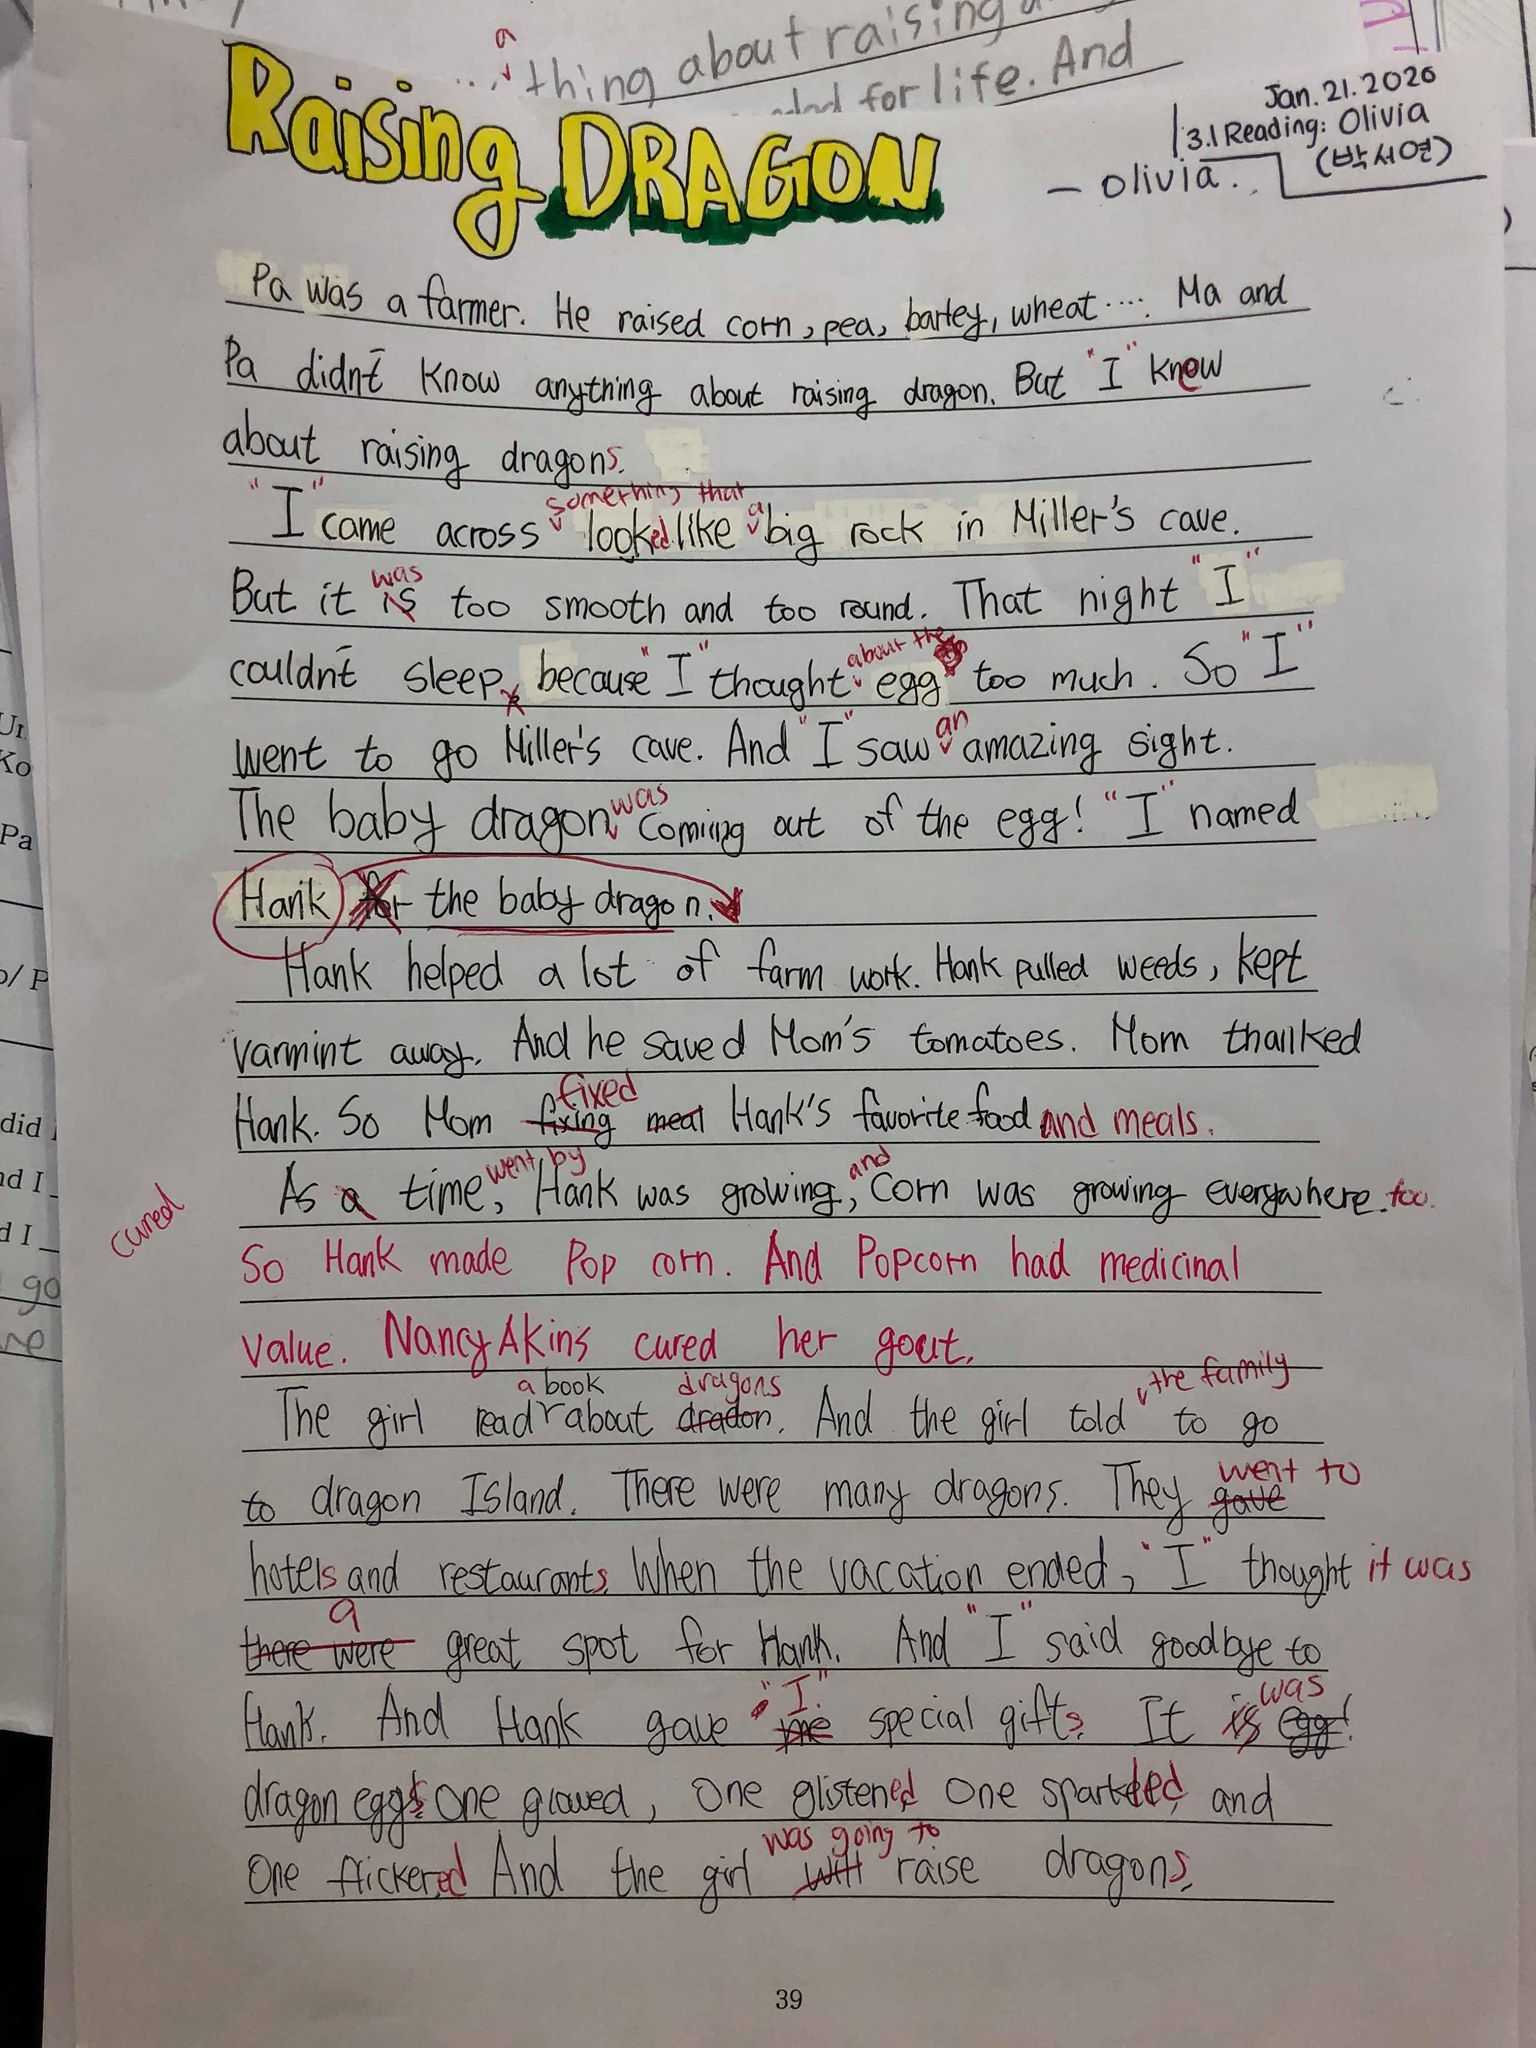 a
thing about raising
for life. And
Raising DRAGON
Jan. 21. 2020
3.1 Reading: Olivia
(박서연)
- olivia..
Pa was a farmer. He raised corn, pea, barley, wheat..... Ma and
Pa didn't know anything about raising dragon. But "I" knew
about raising dragons.
something that a
"I" came across looked like big rock in Miller's cave.
was
But it is too smooth and too round. That night "I"
about the
couldn't sleep because "I" thought egg too much. So "I"
an
went to go Miller's cave. And "I" saw amazing sight.
was
The baby dragon coming out of the egg! "I" named
Hank for the baby dragon.
Hank helped a lot of farm work. Hank pulled weeds, kept
varmint away. And he saved Mom's tomatoes. Mom thanked
fixed
Hank. So Mom fixing meal Hank's favorite food and meals.
went by and
As a time, Hank was growing, Corn was growing everywhere. too.
cured
So Hank made Pop corn. And Popcorn had medicinal
value. Nancy Akins cured her gout.
a book dragons the family
The girl read about dradon. And the girl told to go
went to
to dragon Island. There were many dragons. They gave
hotels and restaurants. When the vacation ended, "I" thought it was
a
there were great spot for Hank. And "I" said goodbye to
"I." was
Hank. And Hank gave me special gifts. It is egg!
dragon eggs. One glowed, One glistened One sparkled, and
was going to
One flickered And the girl will raise dragons.
39